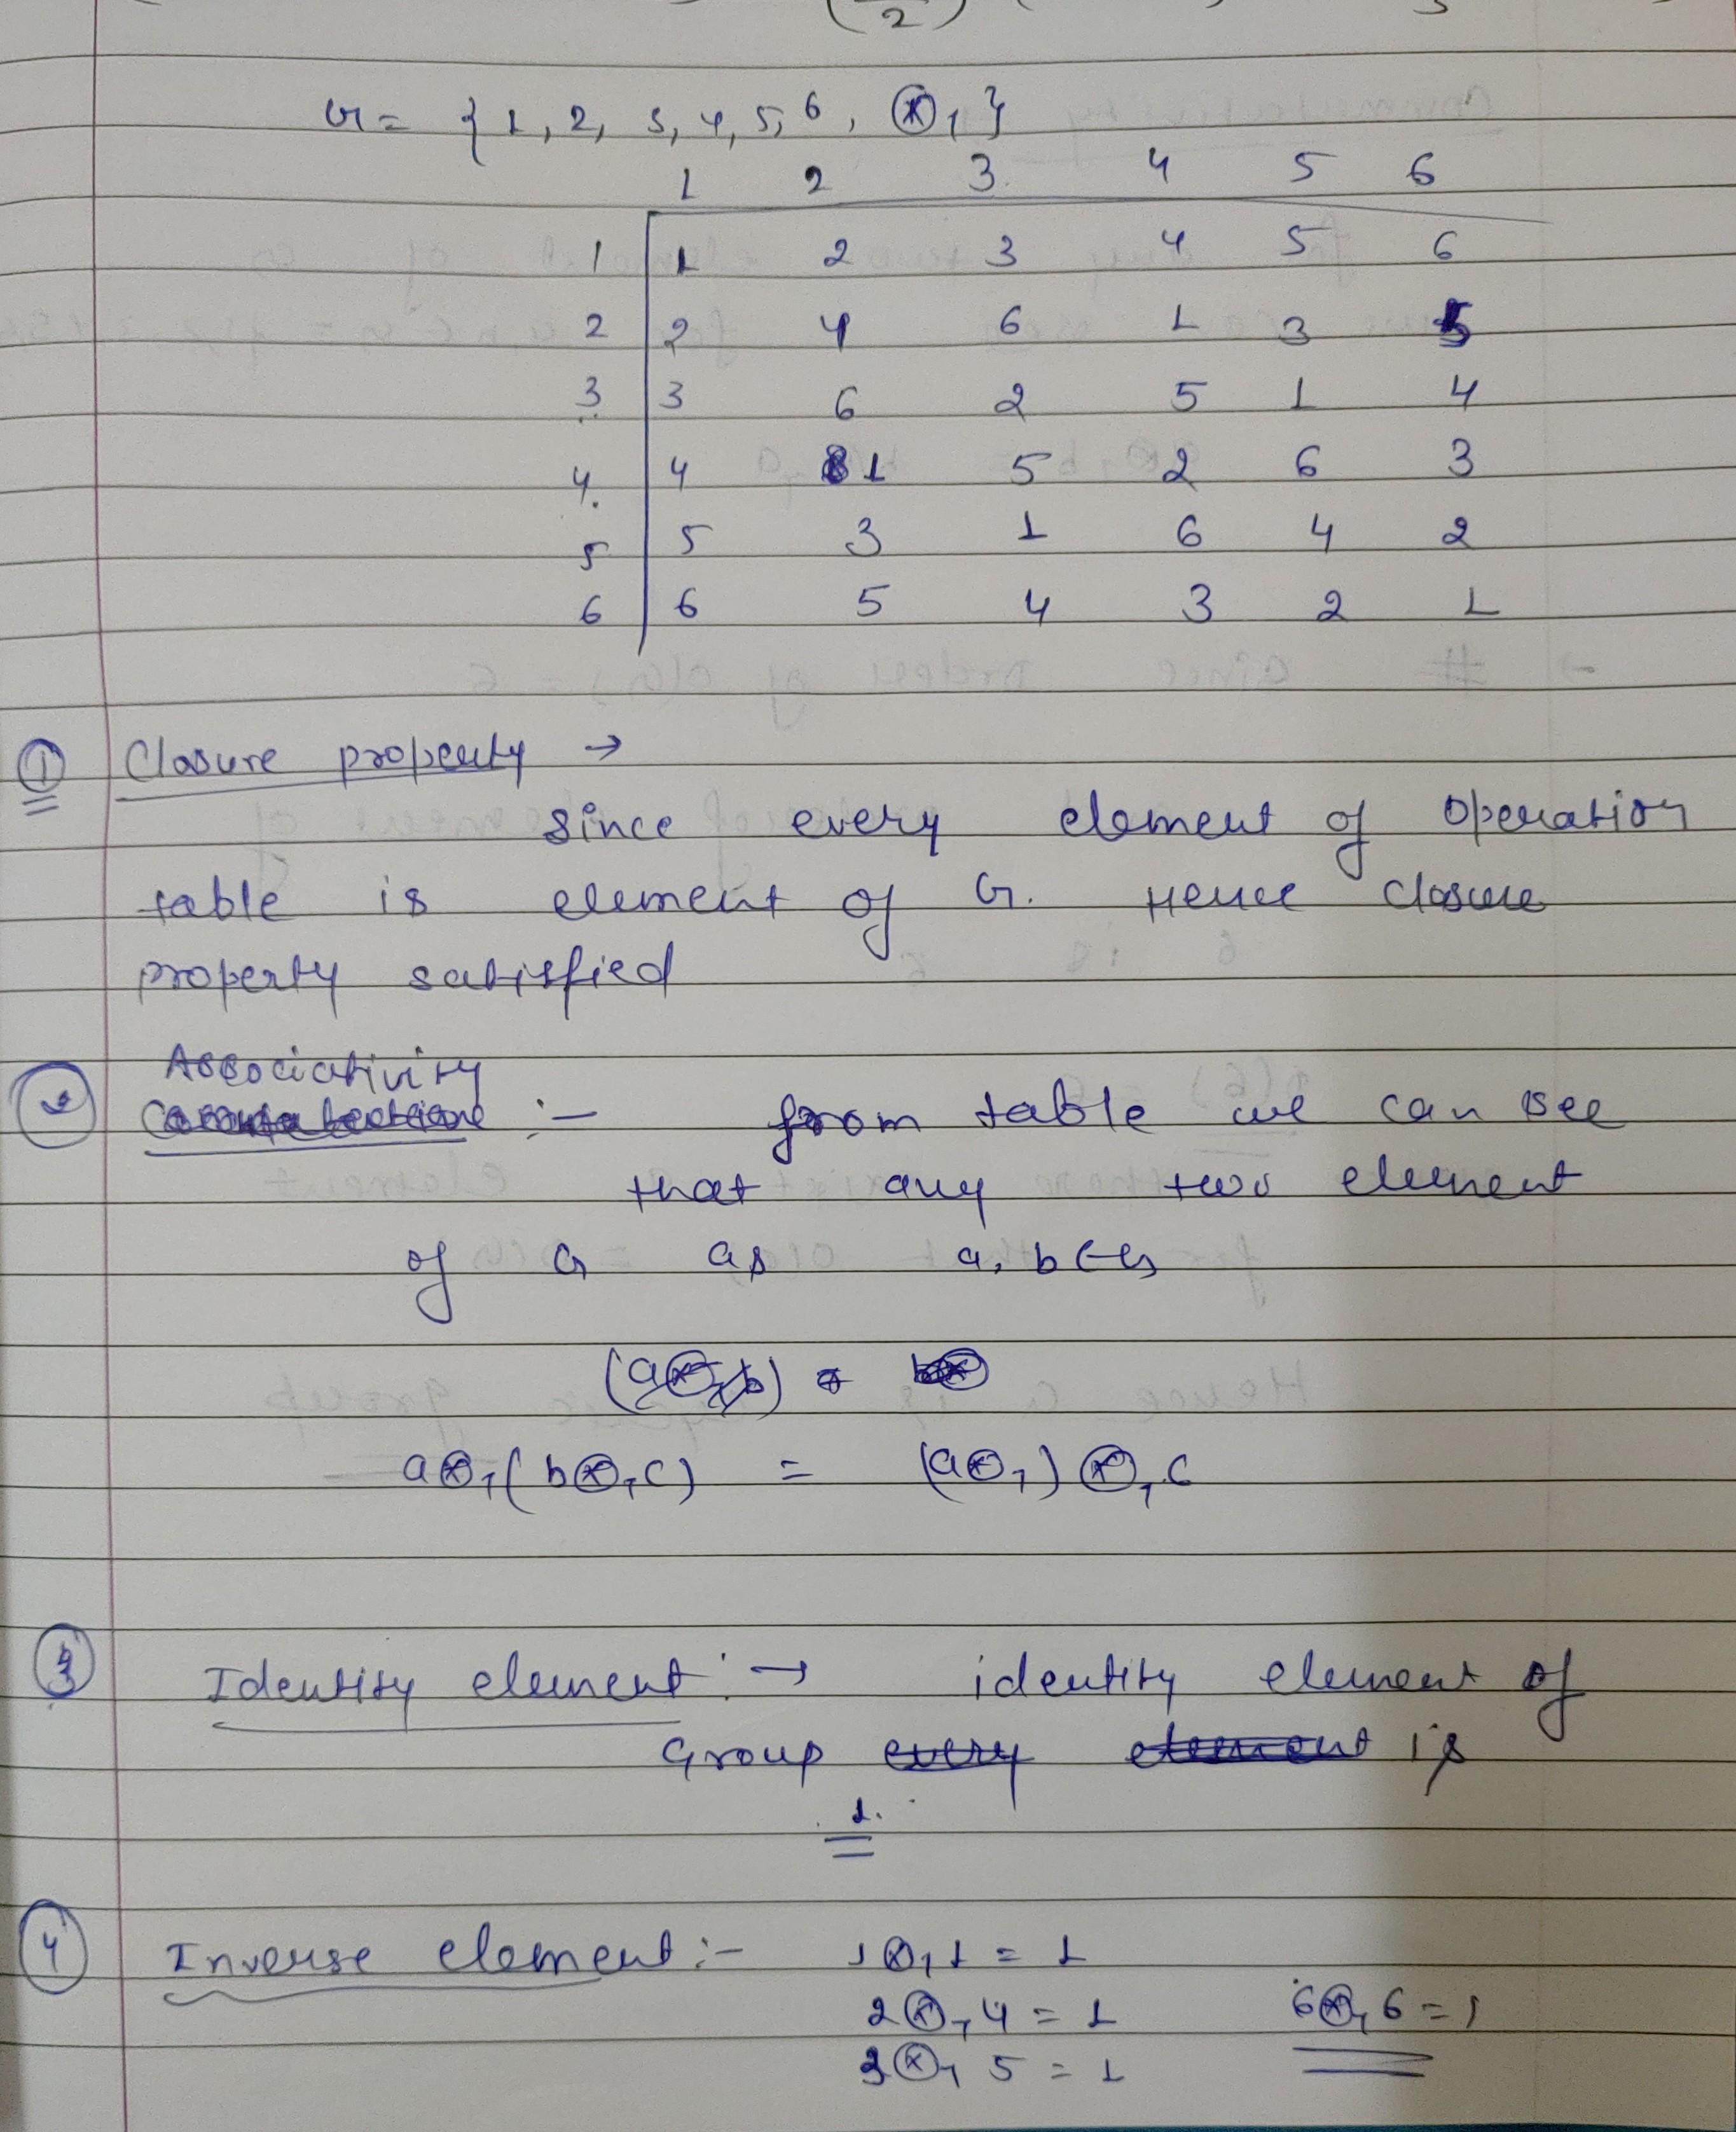 2
G = { 1, 2, 3, 4, 5, 6, ⊗₇ }
1 2 3 4 5 6
1 1 2 3 4 5 6
2 2 4 6 1 3 5
3 3 6 2 5 1 4
4. 4 1 5 2 6 3
5 5 3 1 6 4 2
6 6 5 4 3 2 1
① Closure property →
since every element of operation
table is element of G. Hence closure
property satisfied
Associativity
② :- from table we can see
that any two element
of G as a, b ∈ G
(a⊗₇b) =
a⊗₇(b⊗₇c) = (a⊗₇) ⊗₇c
③ Identity element :→ identity element of
Group every element is
1.
④ Inverse element :- 1⊗₇1 = 1
2⊗₇4 = 1 6⊗₇6 = 1
3⊗₇5 = 1